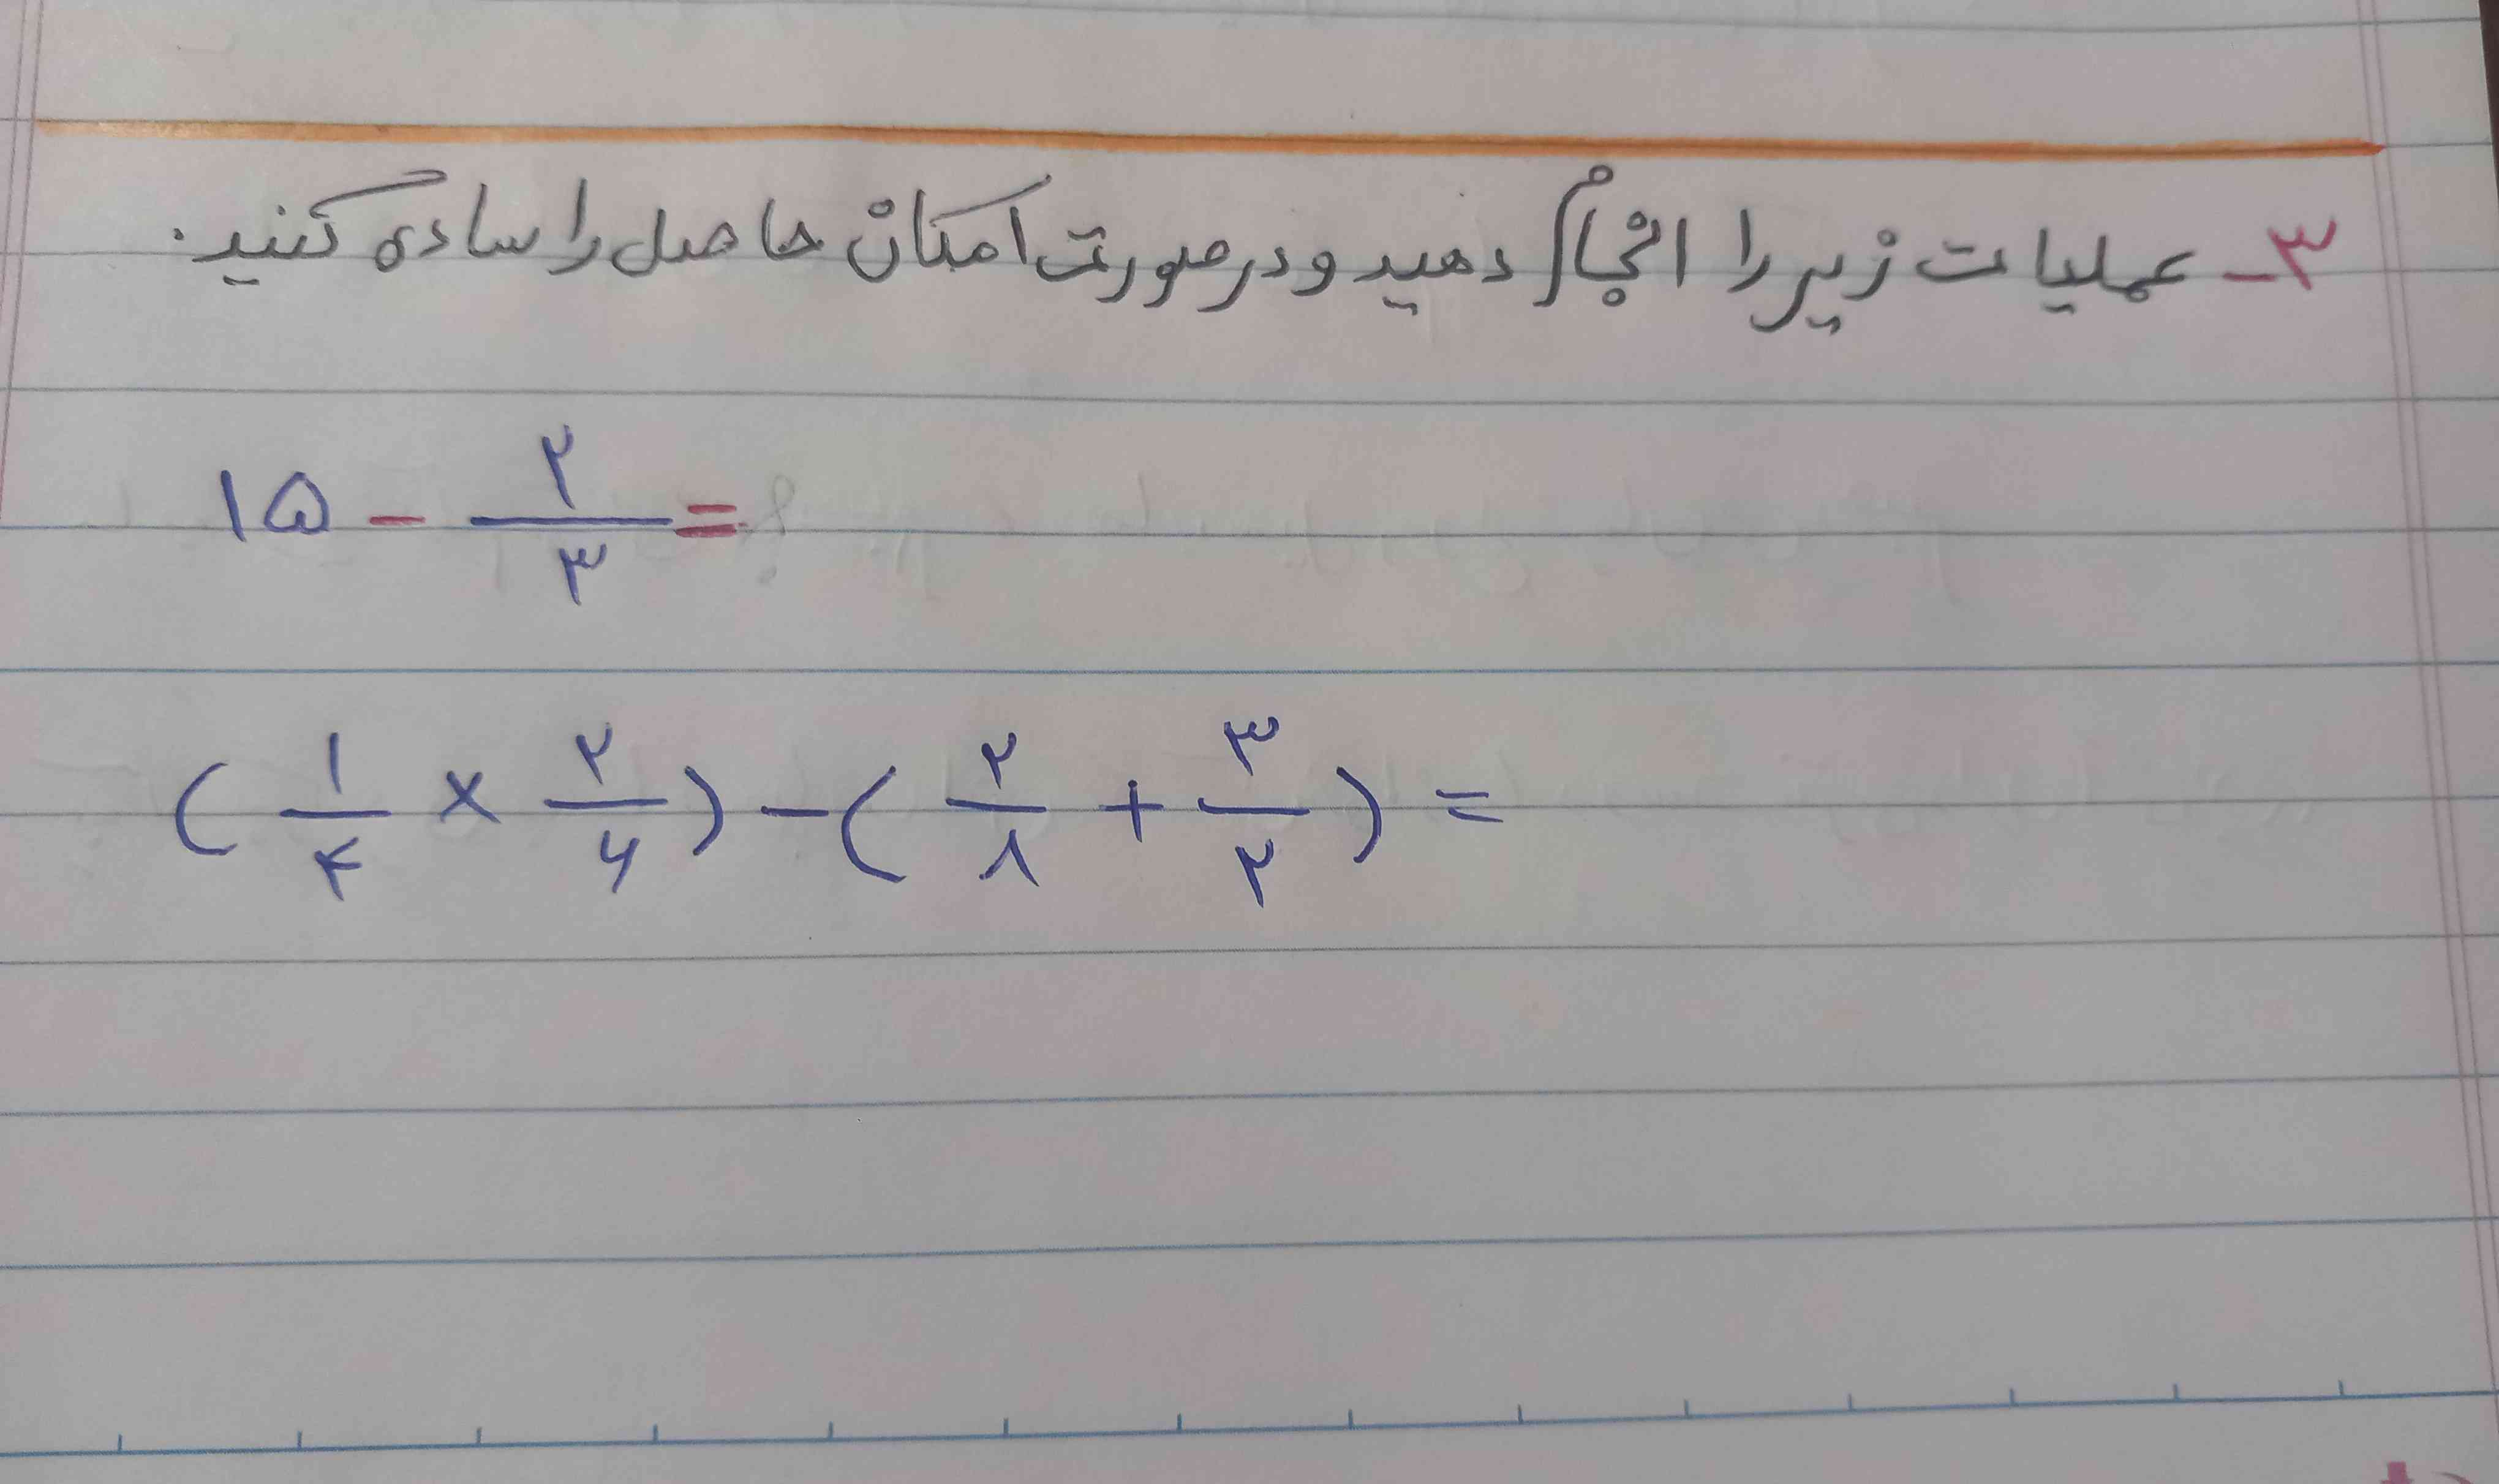 ۳- عملیات زیر را انجام دهید و در صورت امکان حاصل را ساده کنید.
۱۵ - ۲/۳ =
(۱/۴ × ۲/۶) - (۲/۸ + ۳/۲) =